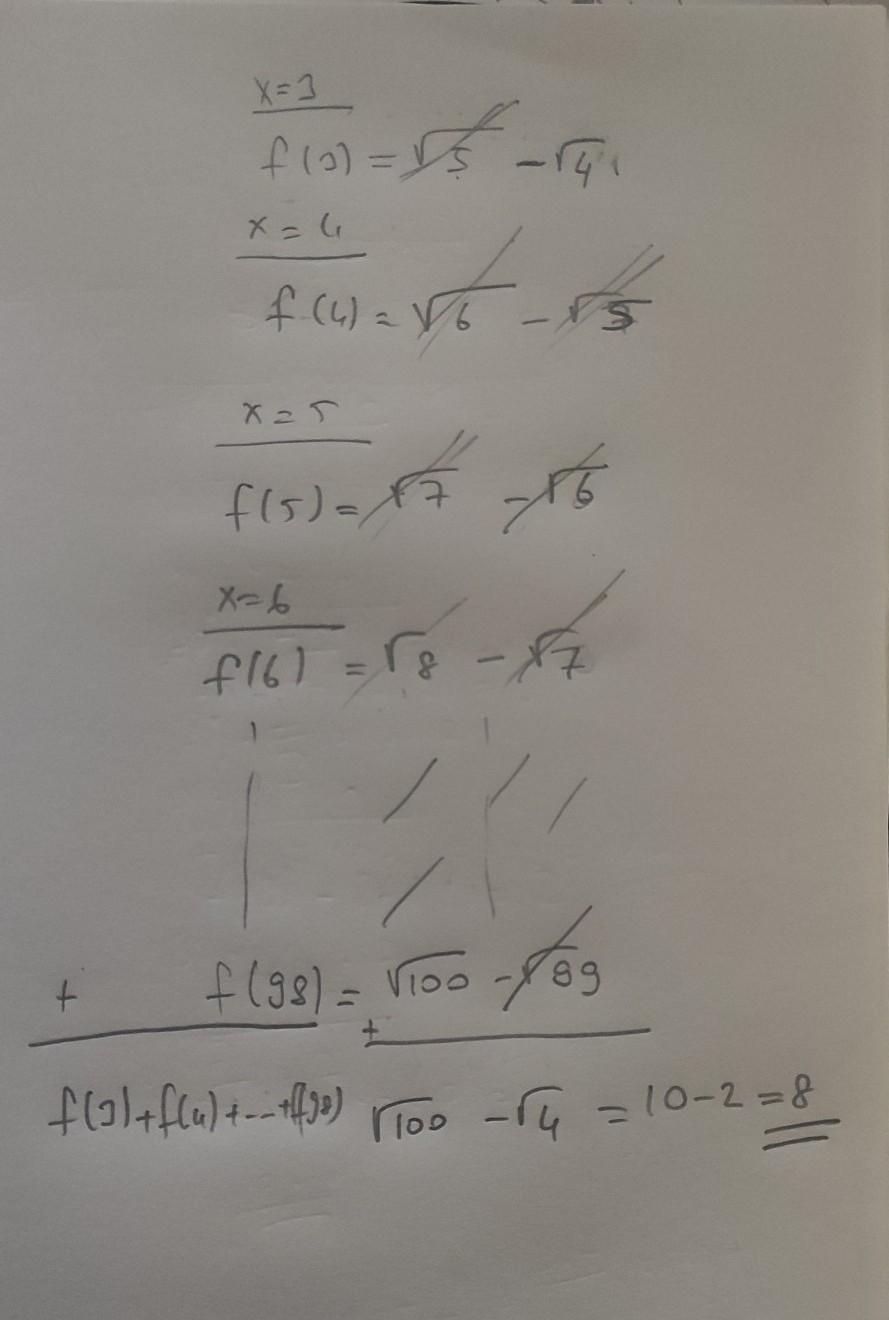 x=3
f(3) = √5 - √4
x=4
f(4) = √6 - √5
x=5
f(5) = √7 - √6
x=6
f(6) = √8 - √7
+ f(98) = √100 - √99
+
f(3)+f(4)+...+f(98) √100 - √4 = 10-2 = 8